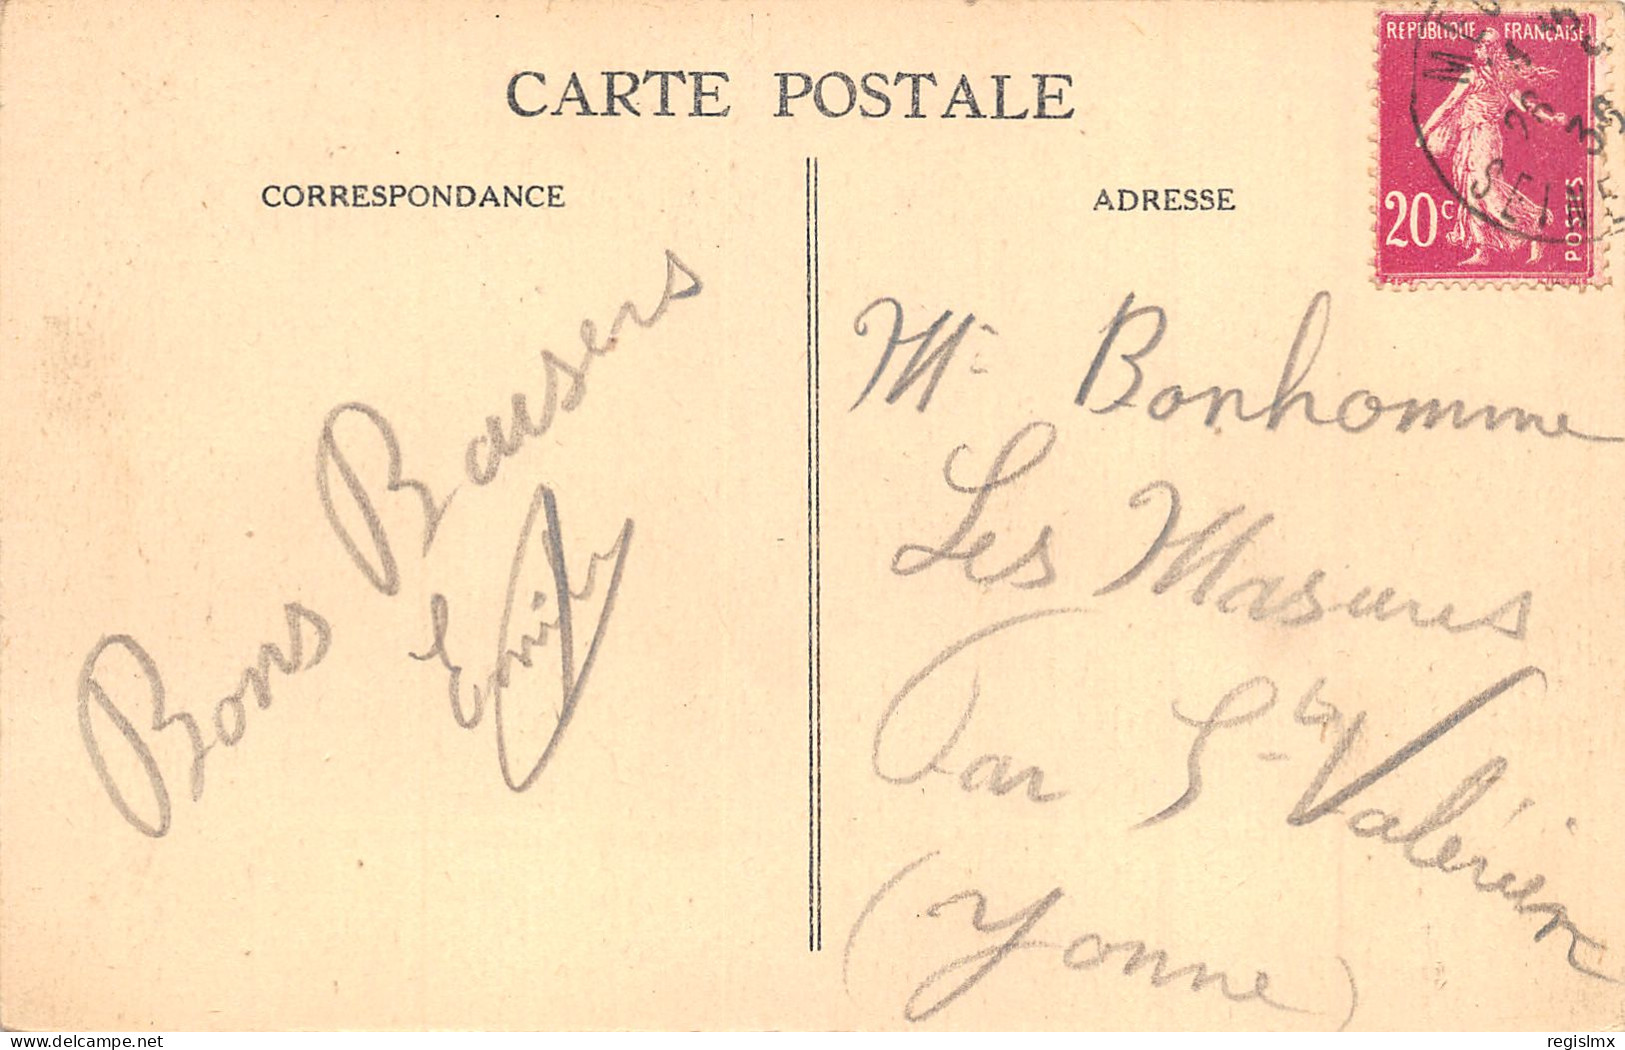 CARTE POSTALE
CORRESPONDANCE
Bons Baisers
Emile
ADRESSE
REPUBLIQUE FRANÇAISE
20c
POSTES
Mr Bonhomme
Les Masures
Par St Valérien
(Yonne)
delcampe.net
regislmx